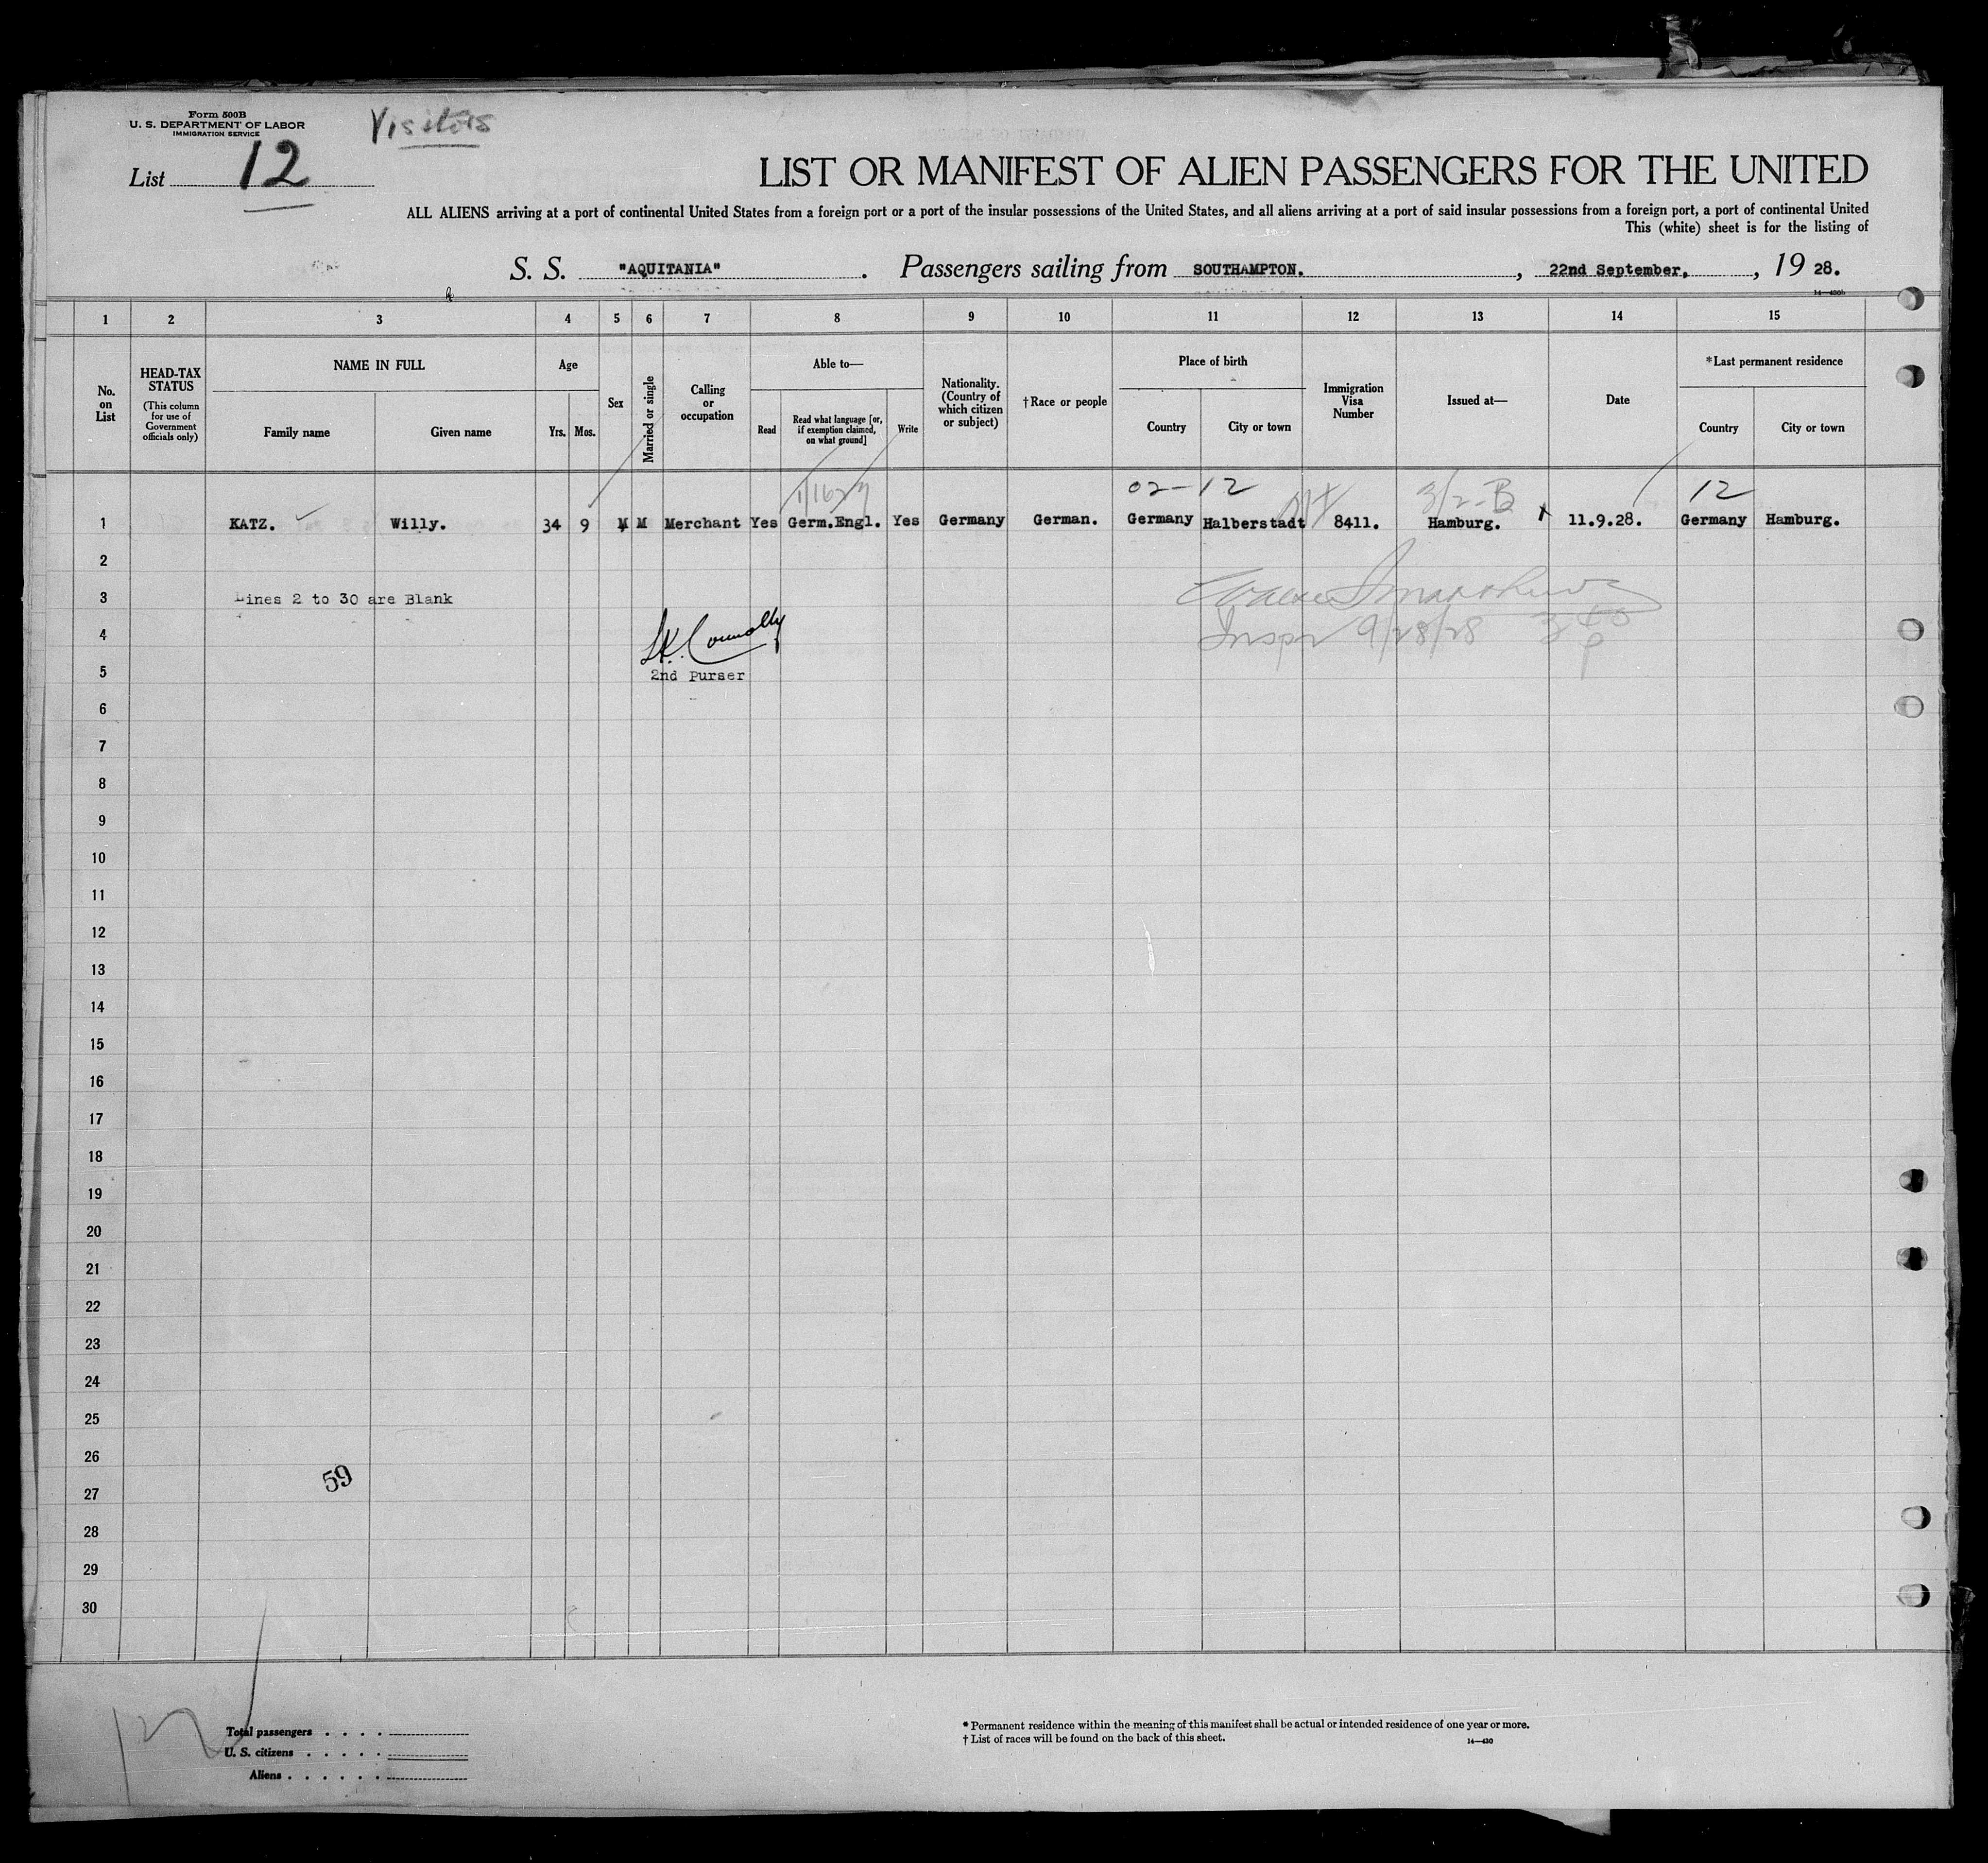 Form 500B
U. S. DEPARTMENT OF LABOR
IMMIGRATION SERVICE
Visitors
List 12
LIST OR MANIFEST OF ALIEN PASSENGERS FOR THE UNITED
ALL ALIENS arriving at a port of continental United States from a foreign port or a port of the insular possessions of the United States, and all aliens arriving at a port of said insular possessions from a foreign port, a port of continental United
This (white) sheet is for the listing of
S. S. "AQUITANIA" . Passengers sailing from SOUTHAMPTON. , 22nd September. , 19 28.
14—430b
1 2 3 4 5 6 7 8 9 10 11 12 13 14 15
No. on List
HEAD-TAX STATUS
(This column for use of Government officials only)
NAME IN FULL
Family name Given name
Age
Yrs. Mos.
Sex
Married or single
Calling or occupation
Able to—
Read
Read what language [or, if exemption claimed, on what ground]
Write
Nationality. (Country of which citizen or subject)
†Race or people
Place of birth
Country City or town
Immigration Visa Number
Issued at—
Date
*Last permanent residence
Country City or town
02-12 3/2-B 12
1 KATZ. Willy. 34 9 M M Merchant Yes Germ.Engl. Yes Germany German. Germany Halberstadt 8411. Hamburg. 11.9.28. Germany Hamburg.
2
3 Lines 2 to 30 are Blank
4 Connolly Inspr 9/28/28
5 2nd Purser
6
7
8
9
10
11
12
13
14
15
16
17
18
19
20
21
22
23
24
25
26
59
27
28
29
30
Total passengers . . . .
U. S. citizens . . . . .
Aliens . . . . . .
* Permanent residence within the meaning of this manifest shall be actual or intended residence of one year or more.
† List of races will be found on the back of this sheet.
14—430